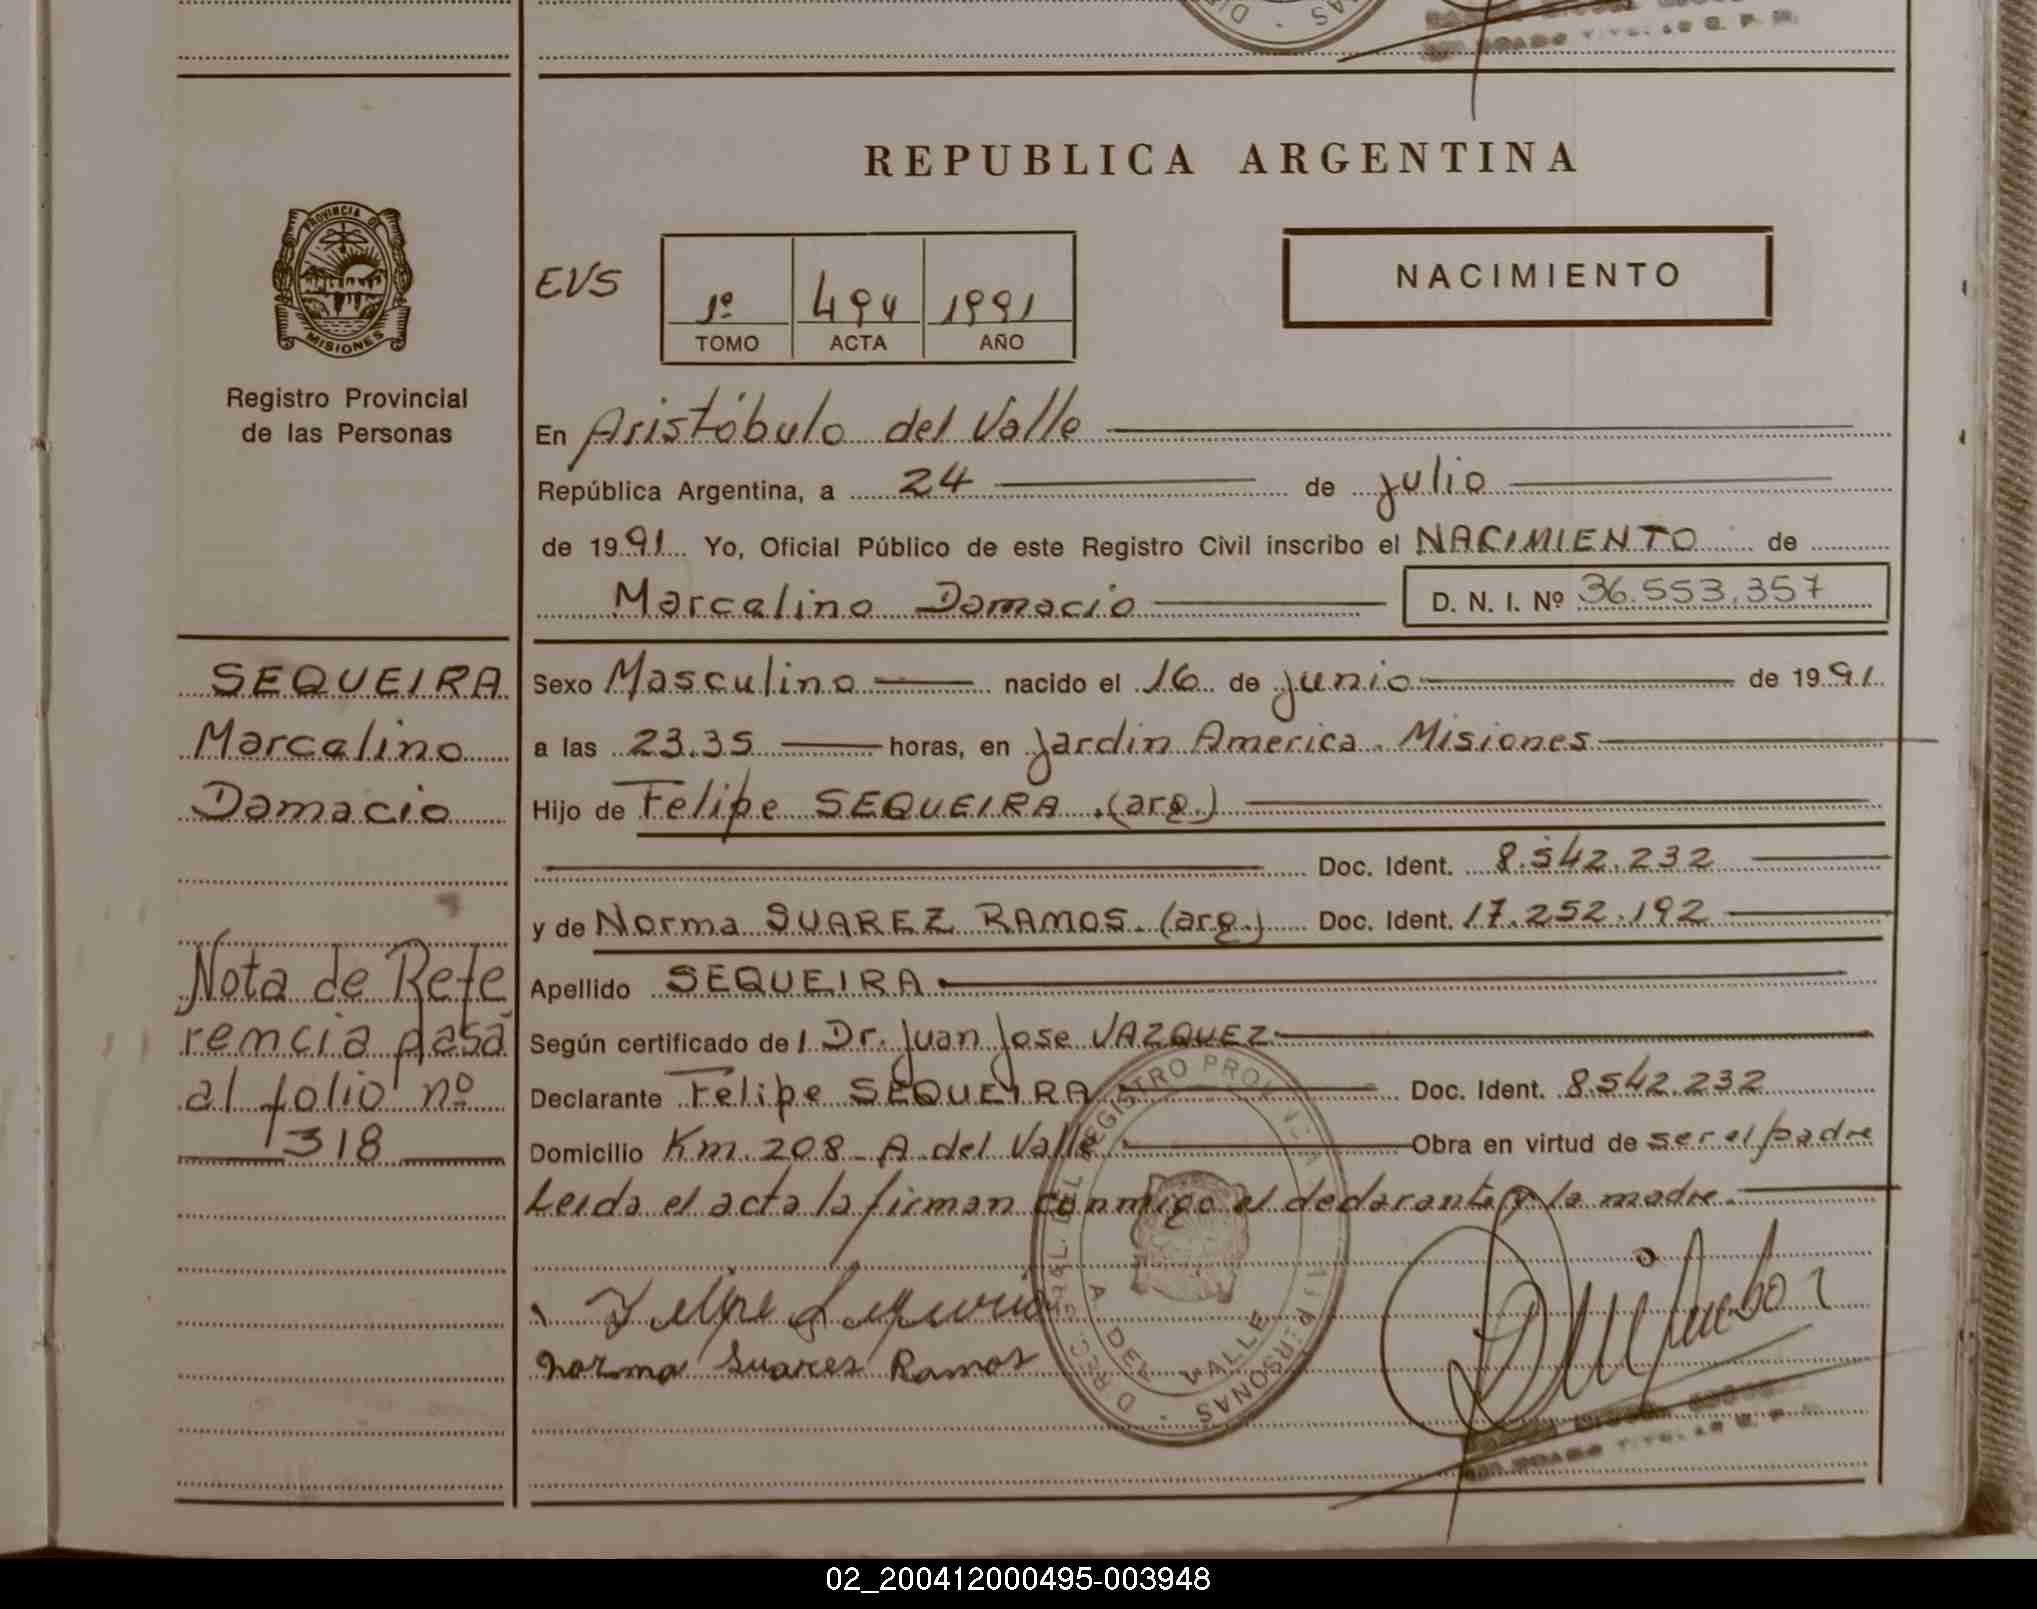 REPUBLICA ARGENTINA
PROVINCIA DE
MISIONES
Registro Provincial
de las Personas
EVS
1º 494 1991
TOMO ACTA AÑO
NACIMIENTO
En Aristóbulo del Valle
República Argentina, a 24 de julio
de 1991 Yo, Oficial Público de este Registro Civil inscribo el NACIMIENTO de
Marcelino Damacio D. N. I. Nº 36.553.357
SEQUEIRA
Marcelino
Damacio
Nota de Refe
rencia pasa
al folio nº
318
Sexo Masculino nacido el 16 de junio de 1991
a las 23.35 horas, en Jardin America. Misiones
Hijo de Felipe SEQUEIRA. (arg.)
Doc. Ident. 8.542.232
y de Norma SUAREZ RAMOS. (arg.) Doc. Ident. 17.252.192
Apellido SEQUEIRA
Según certificado del Dr. Juan Jose VAZQUEZ
Declarante Felipe SEQUEIRA Doc. Ident. 8.542.232
Domicilio Km. 208 - A. del Valle Obra en virtud de ser el padre
Leida el acta la firman conmigo el declarante y la madre.
Felipe Sequeira
Norma Suares Ramos
A. DEL VALLE
02_200412000495-003948